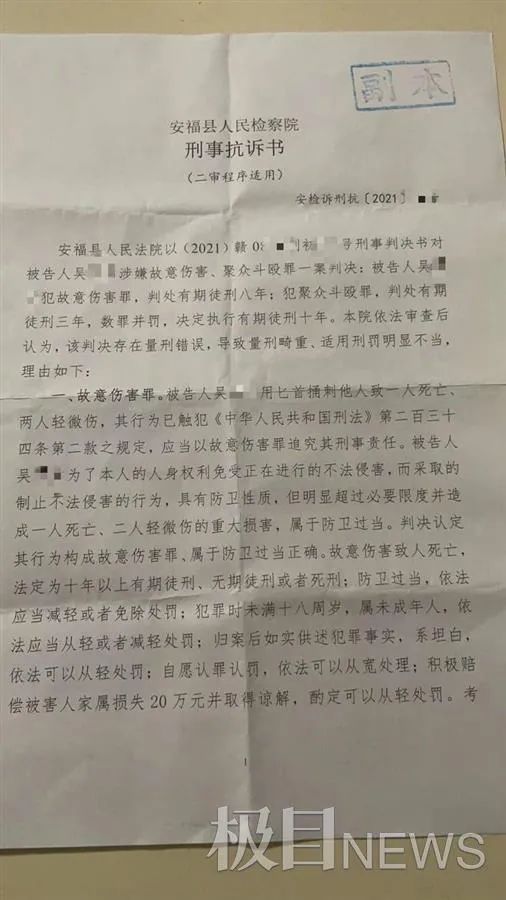 副本
安福县人民检察院
刑事抗诉书
（二审程序适用）
安检诉刑抗〔2021〕
安福县人民法院以（2021）赣 0 刑初 号刑事判决书对
被告人吴 涉嫌故意伤害、聚众斗殴罪一案判决：被告人吴
犯故意伤害罪，判处有期徒刑八年；犯聚众斗殴罪，判处有期
徒刑三年，数罪并罚，决定执行有期徒刑十年。本院依法审查后
认为，该判决存在量刑错误，导致量刑畸重、适用刑罚明显不当，
理由如下：
一、故意伤害罪。被告人吴 用匕首捅刺他人致一人死亡、
两人轻微伤，其行为已触犯《中华人民共和国刑法》第二百三十
四条第二款之规定，应当以故意伤害罪追究其刑事责任。被告人
吴 为了本人的人身权利免受正在进行的不法侵害，而采取的
制止不法侵害的行为，具有防卫性质，但明显超过必要限度并造
成一人死亡、二人轻微伤的重大损害，属于防卫过当。判决认定
其行为构成故意伤害罪、属于防卫过当正确。故意伤害致人死亡，
法定为十年以上有期徒刑、无期徒刑或者死刑；防卫过当，依法
应当减轻或者免除处罚；犯罪时未满十八周岁，属未成年人，依
法应当从轻或者减轻处罚；归案后如实供述犯罪事实，系坦白，
依法可以从轻处罚；自愿认罪认罚，依法可以从宽处理；积极赔
偿被害人家属损失 20 万元并取得谅解，酌定可以从轻处罚。考
1
极目NEWS